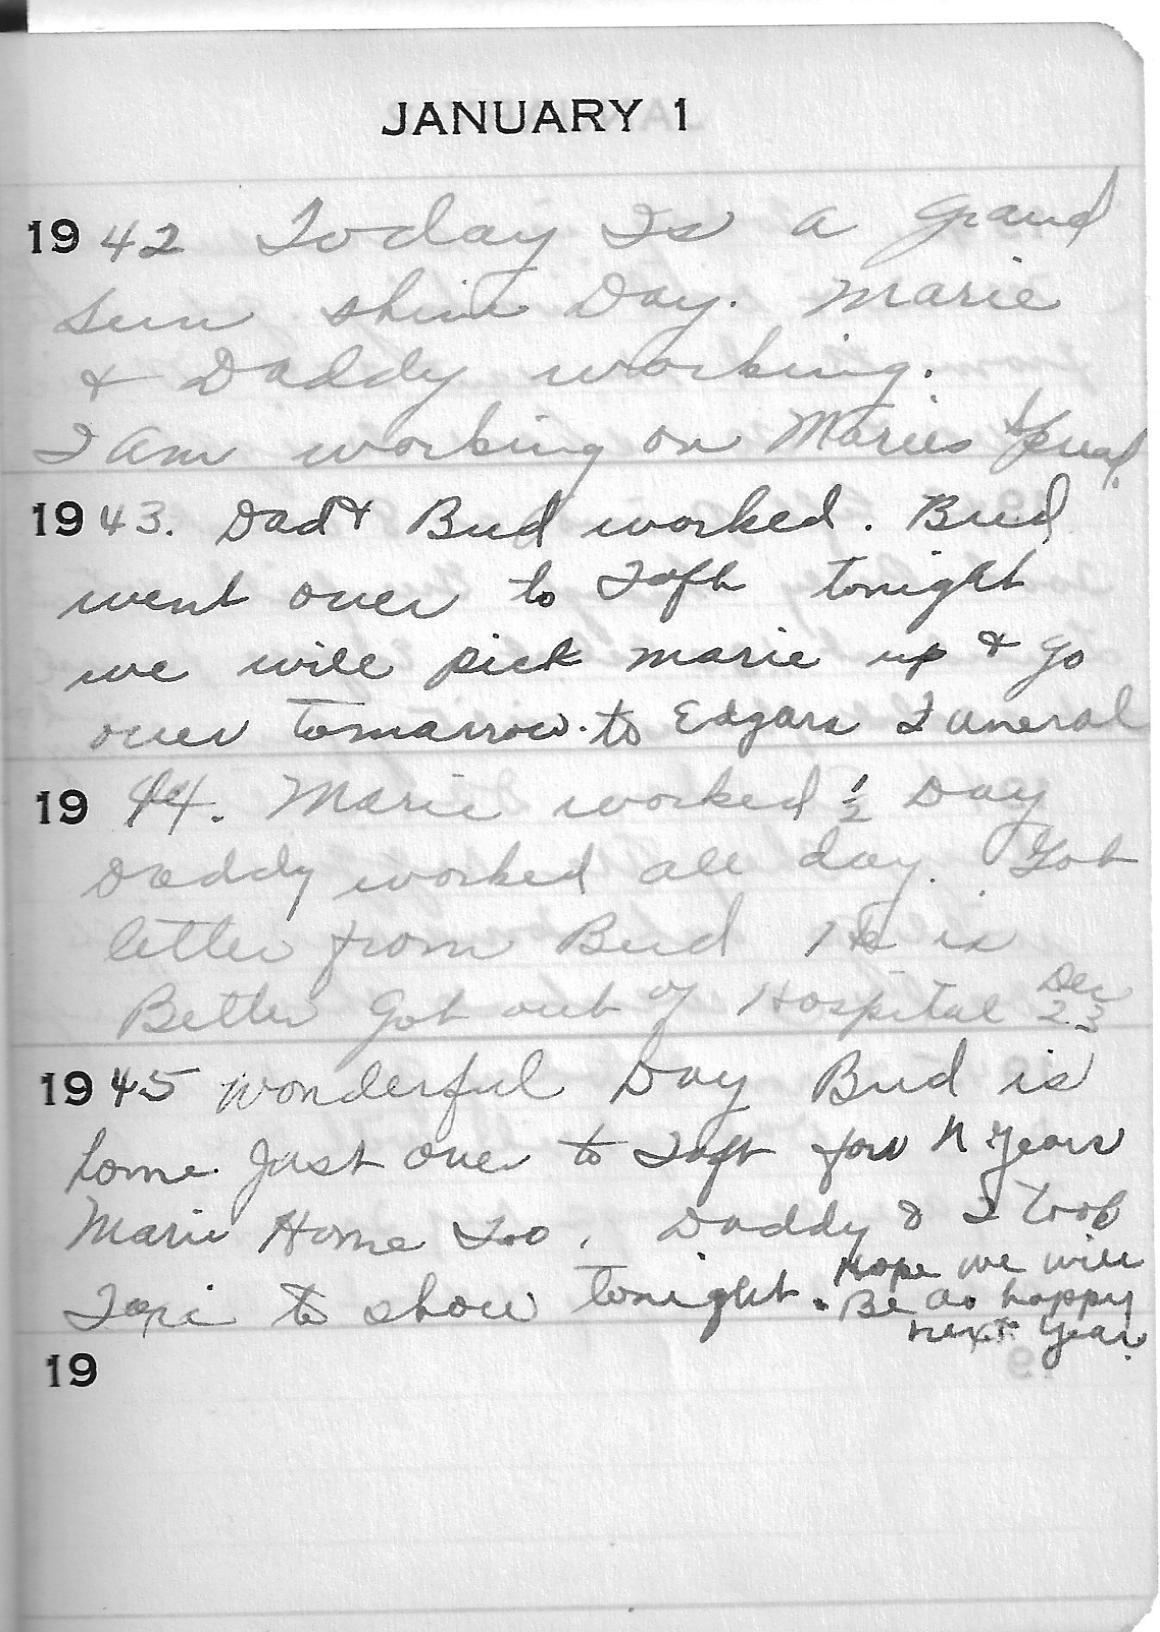 JANUARY 1
1942 Today Is a grand
sun shine Day. Marie
& Daddy working.
I am working on Maries
1943. Dad & Bud worked. Bud
went over to Taft tonight
we will pick marie up & go
over tomarrow. to Edgars Funeral
1944. Marie worked ½ Day
Daddy worked all day. Got
letter from Bud He is
Better Got out of Hospital Dec 23
1945 Wonderful Day Bud is
home Just over to Taft for N Years
Marie Home Too. Daddy & I took
Taxi to show tonight. Hope we will
Be as happy
next Year.
19